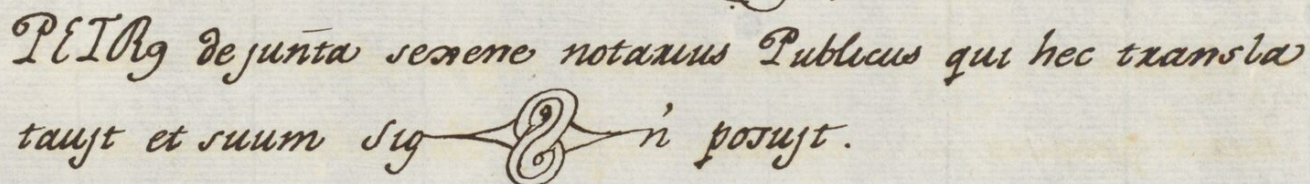 PETRꝯ de junta serene notarius Publicus qui hec transla
taujt et suum sig n̉ posujt.